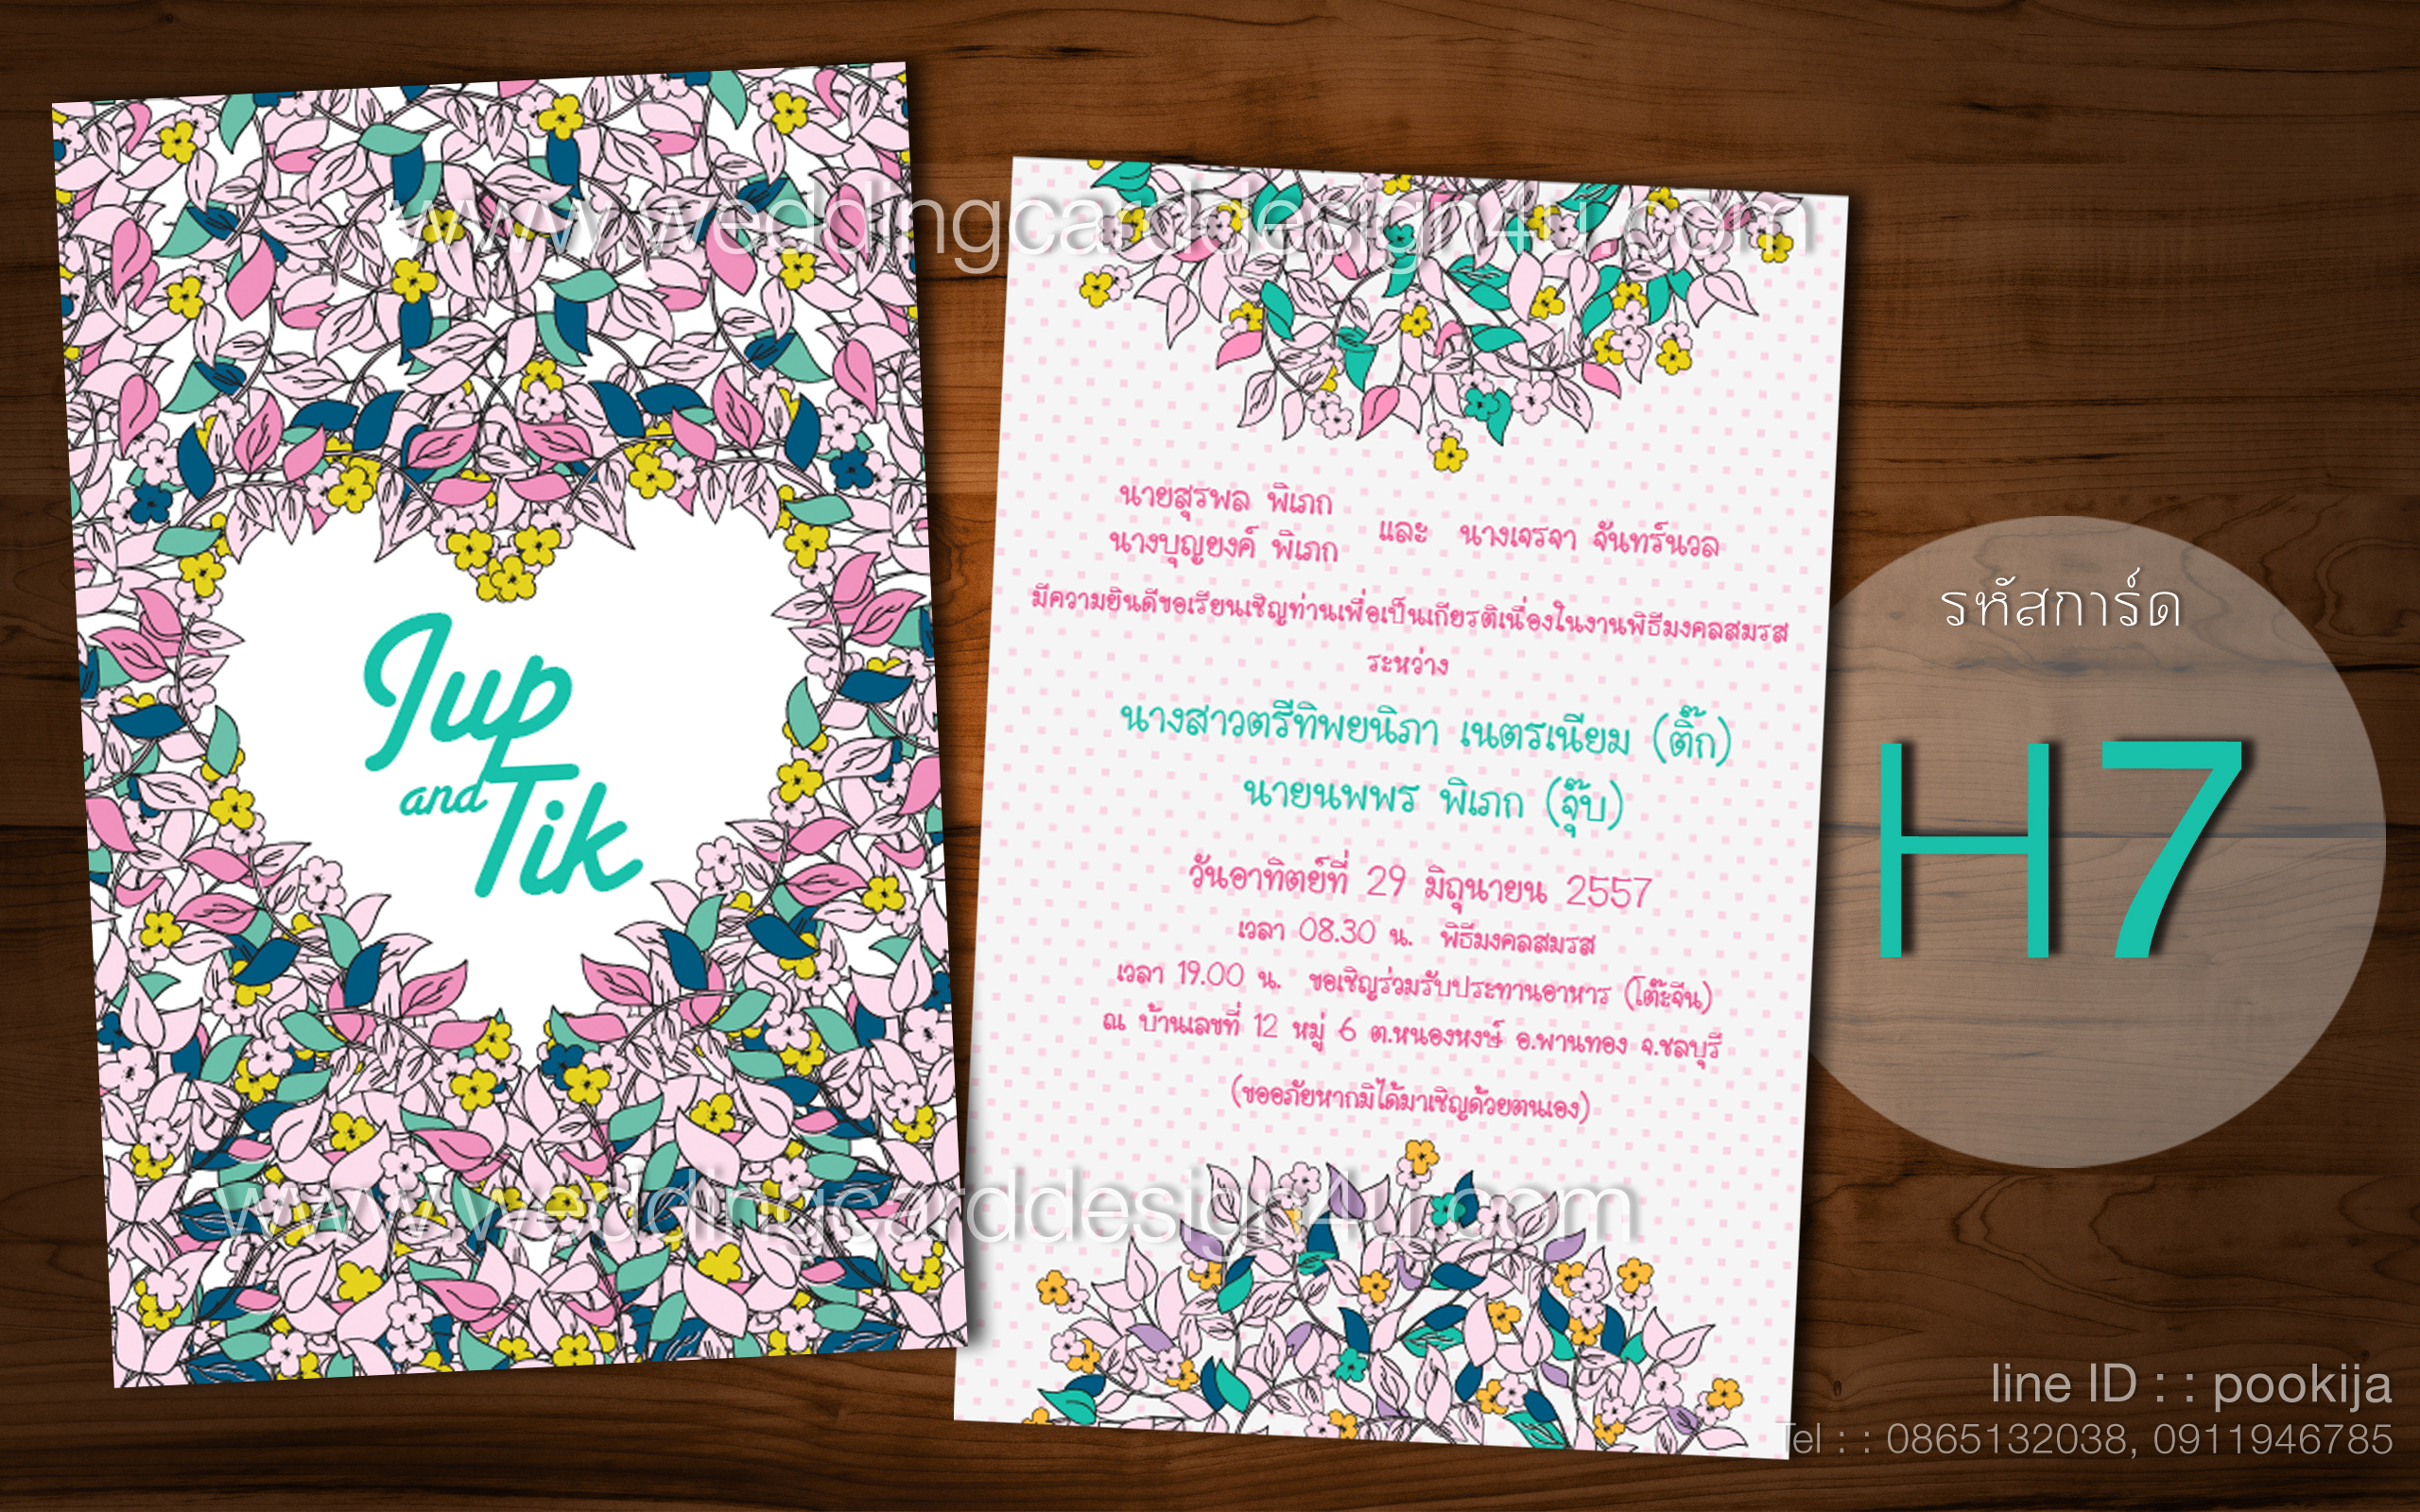 www.weddingcarddesign4u.com
Jup
and Tik
นายสุรพล พิเภก
นางบุญยงค์ พิเภก
และ นางเจรจา จันทร์นวล
มีความยินดีขอเรียนเชิญท่านเพื่อเป็นเกียรติเนื่องในงานพิธีมงคลสมรส
ระหว่าง
นางสาวตรีทิพยนิภา เนตรเนียม (ติ๊ก)
นายนพพร พิเภก (จุ๊บ)
วันอาทิตย์ที่ 29 มิถุนายน 2557
เวลา 08.30 น. พิธีมงคลสมรส
เวลา 19.00 น. ขอเชิญร่วมรับประทานอาหาร (โต๊ะจีน)
ณ บ้านเลขที่ 12 หมู่ 6 ต.หนองหงษ์ อ.พานทอง จ.ชลบุรี
(ขออภัยหากมิได้มาเชิญด้วยตนเอง)
www.weddingcarddesign4u.com
รหัสการ์ด
H7
line ID : : pookija
Tel : : 0865132038, 0911946785